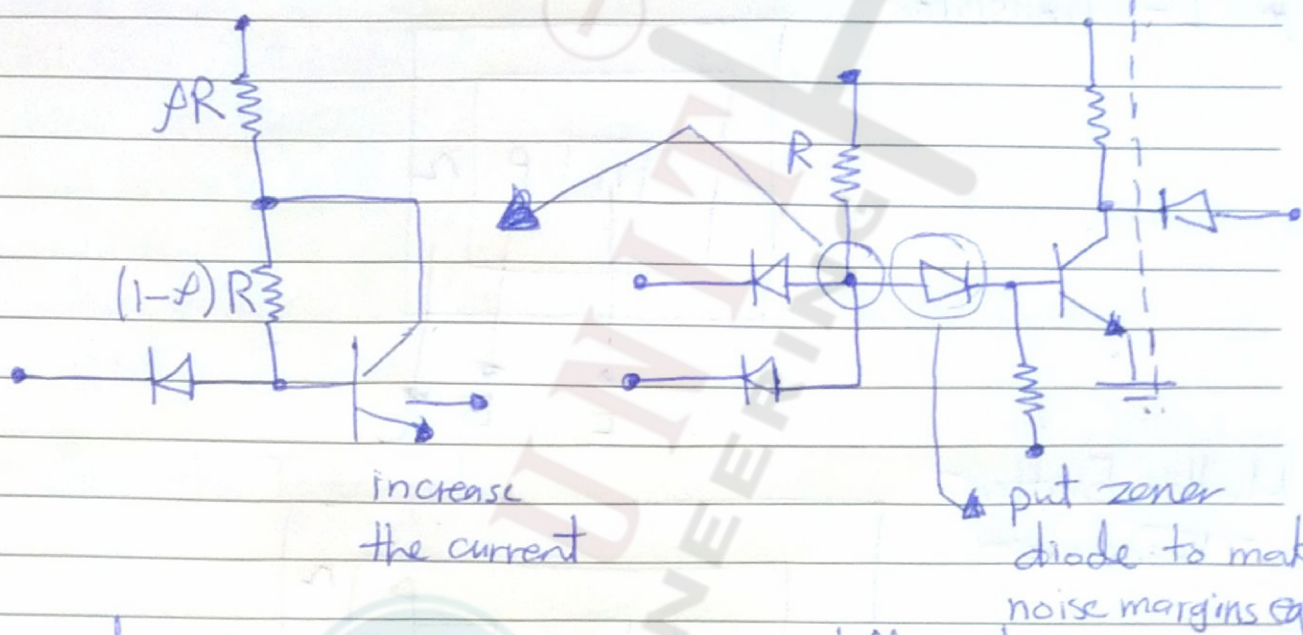 ρR
R
(1-ρ)R
increase
the current
put zener
diode to mak
noise margins eq
UNIT
NEERING